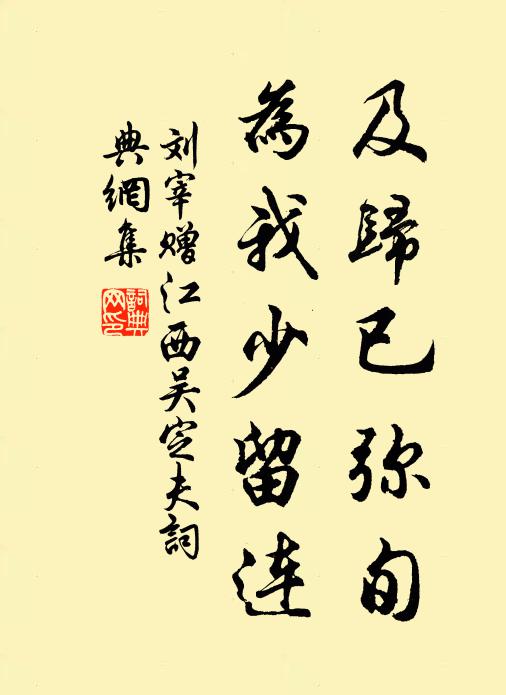 及歸已弥旬
為我少留連
刘宰赠江西吴定夫詞
典網集
詞典
网印